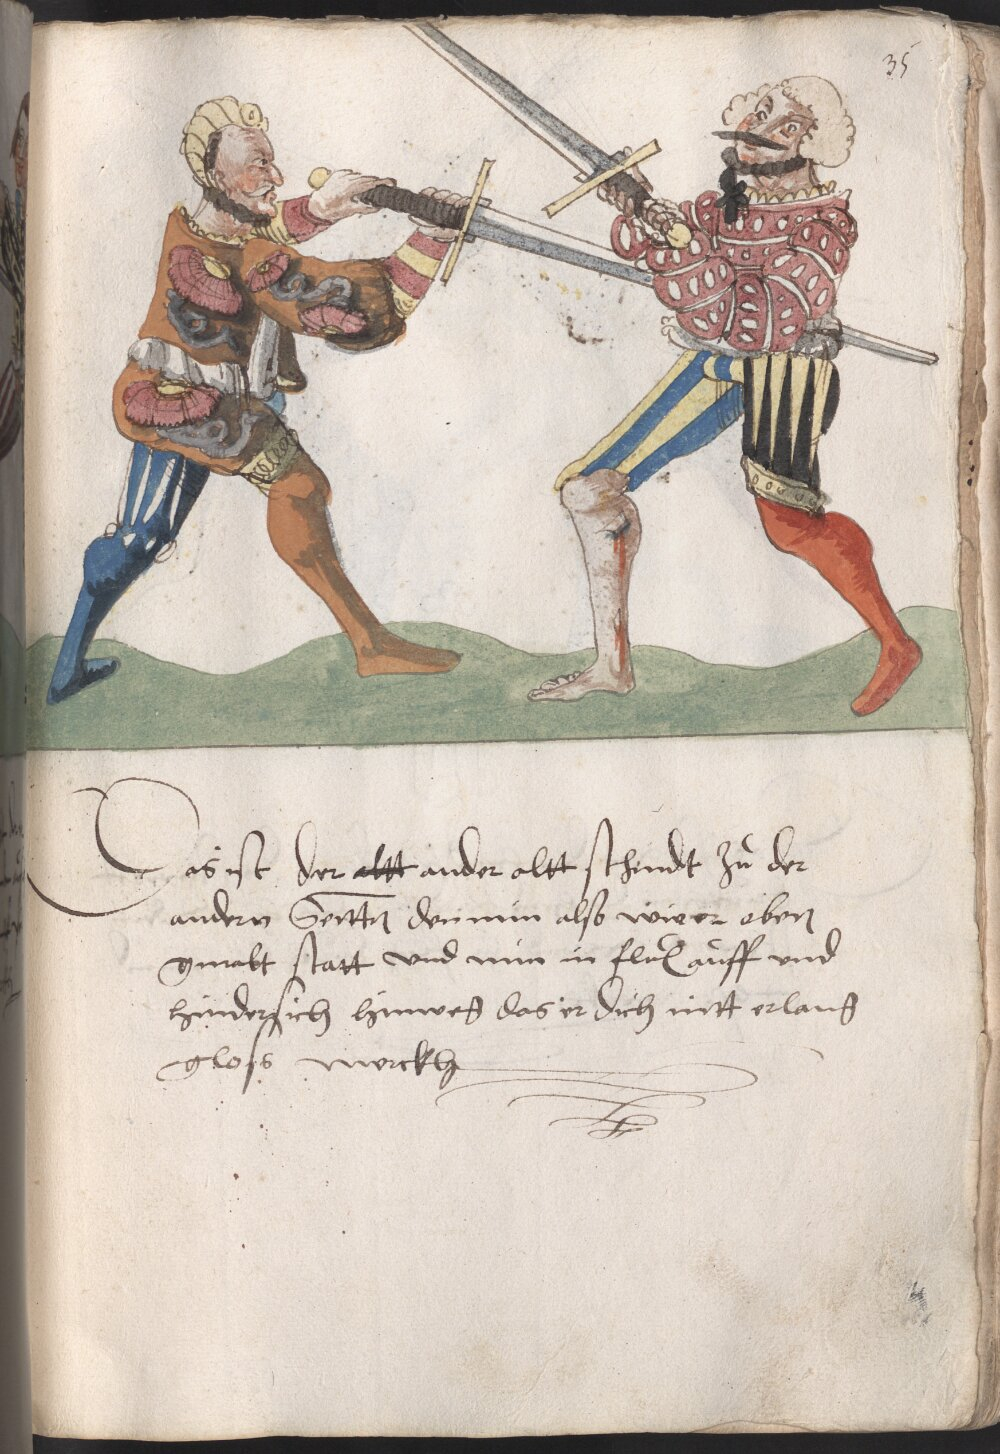 35
Das ist der altt ander altt schindt zů der
andern Seittn̄ den nim also wie er oben
gmalt statt und nim in flux auff und
hindersich hinweg das er dich nitt erlang
gloss merckh